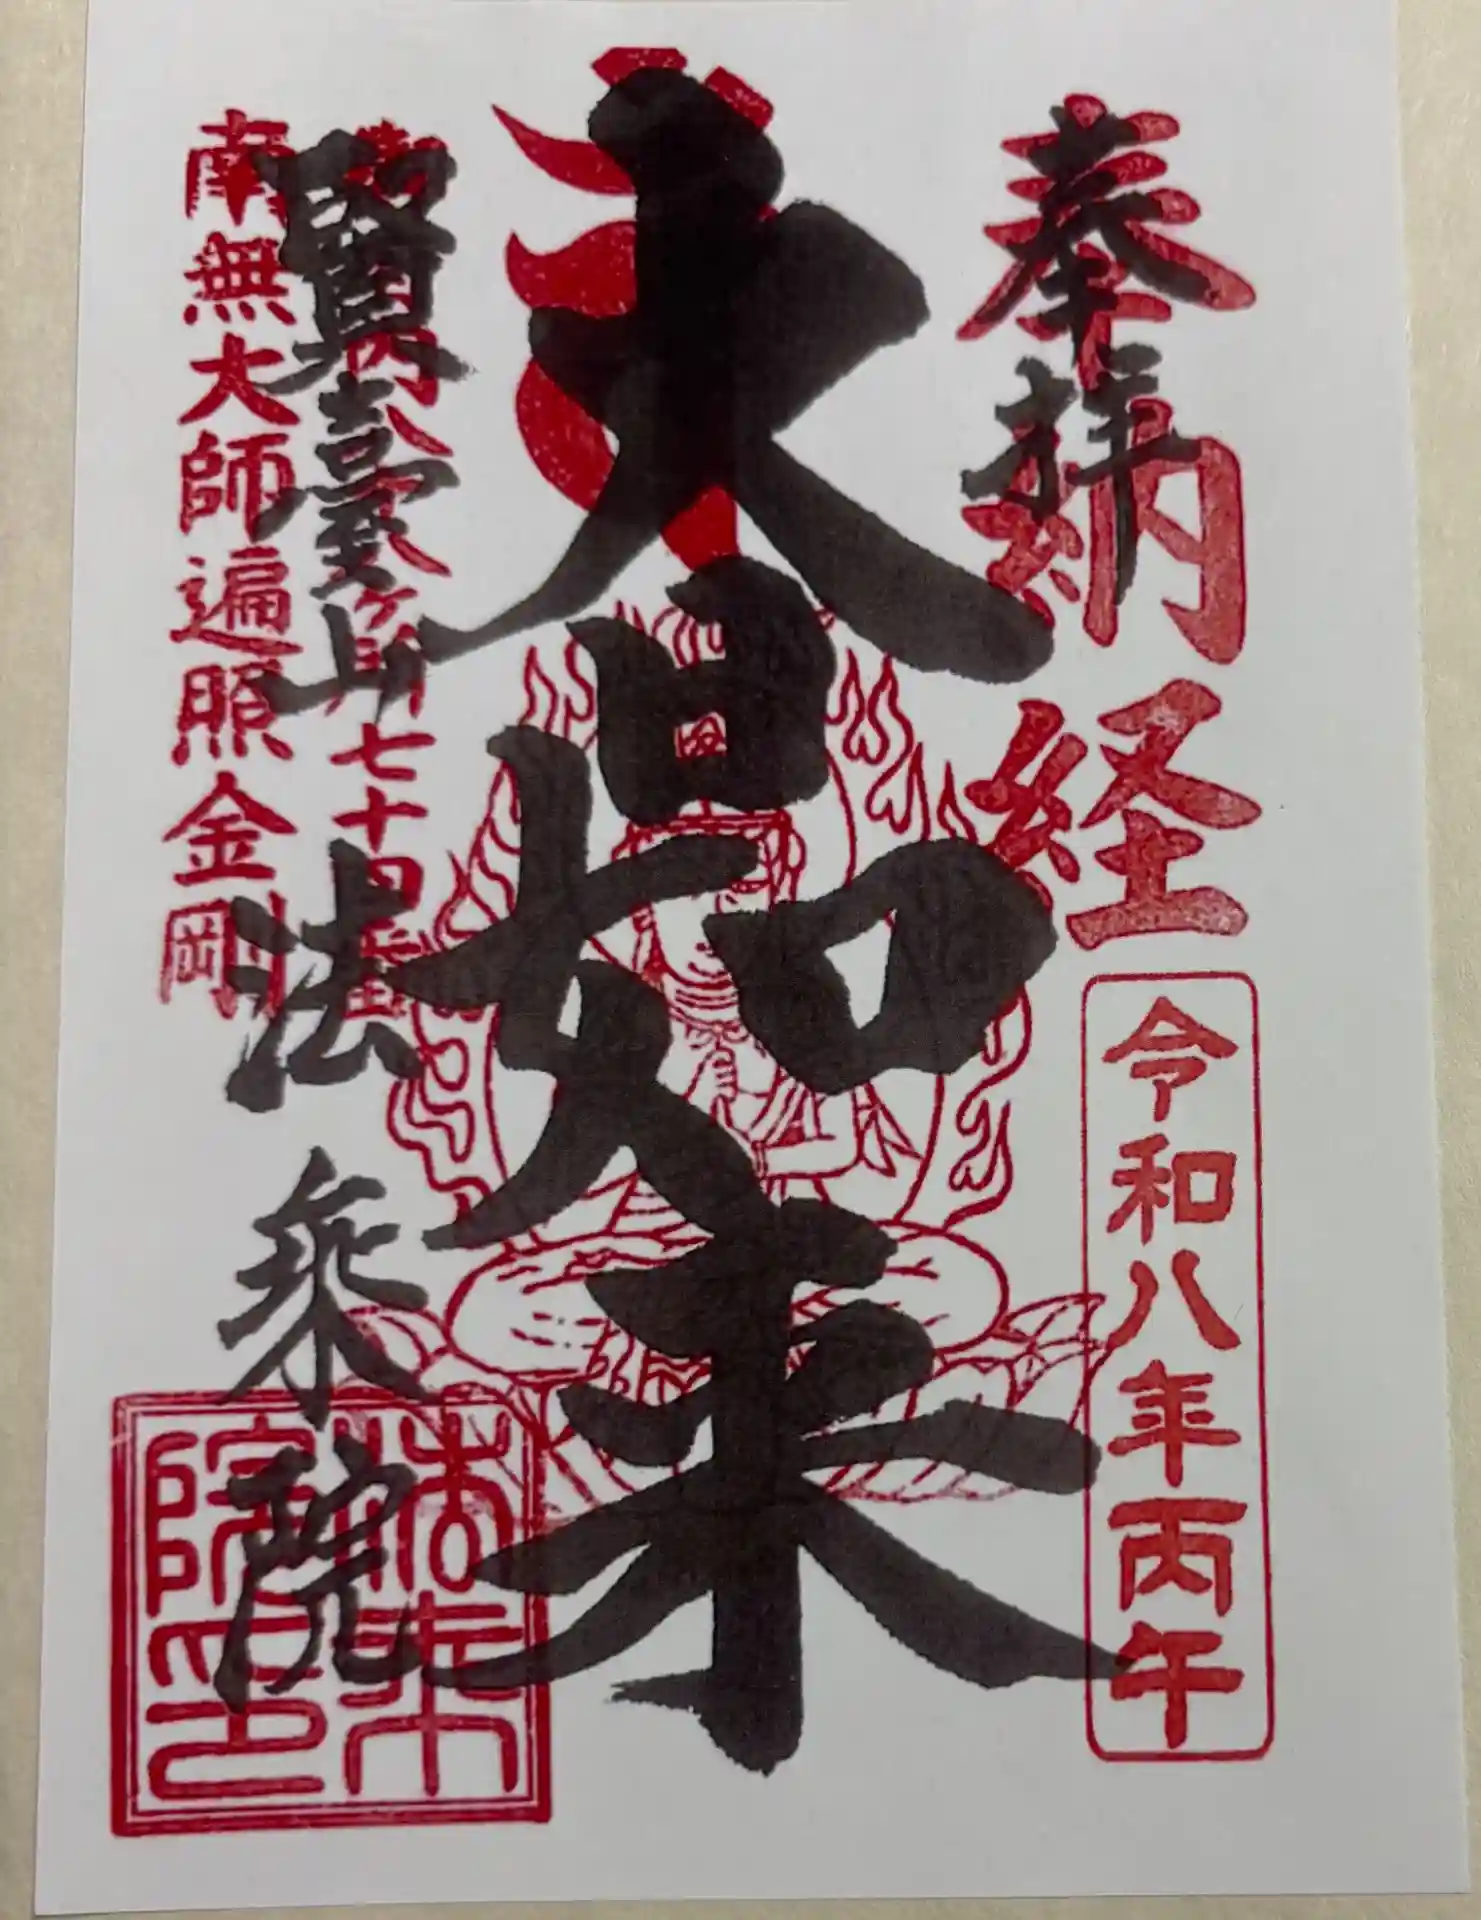 奉拝
納経
令和八年丙午
大日如来
賢臺山
法乗院
七十四番
南無大師遍照金剛
法乗院印